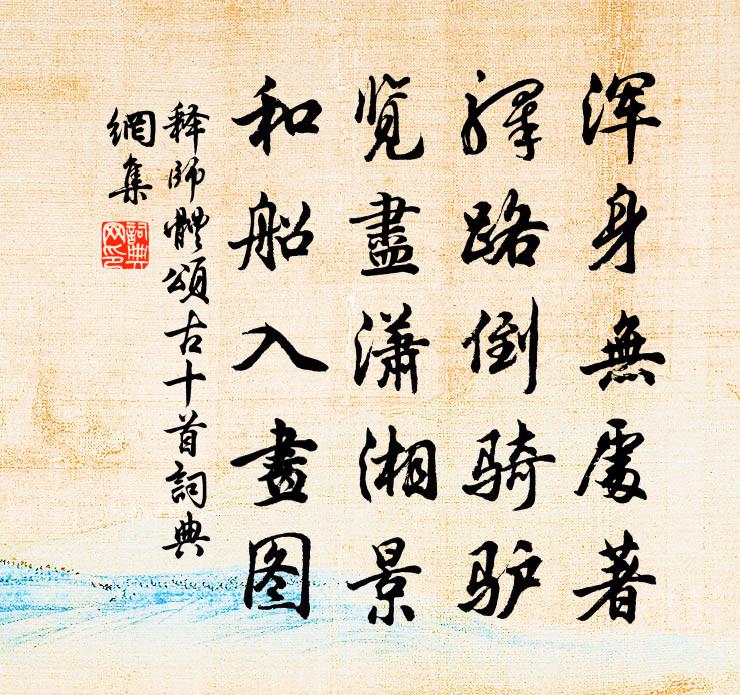 浑身無處著
驛路倒骑驴
覽盡瀟湘景
和船入畫图
释師體頌古十首詞典
網集
詞典
网印